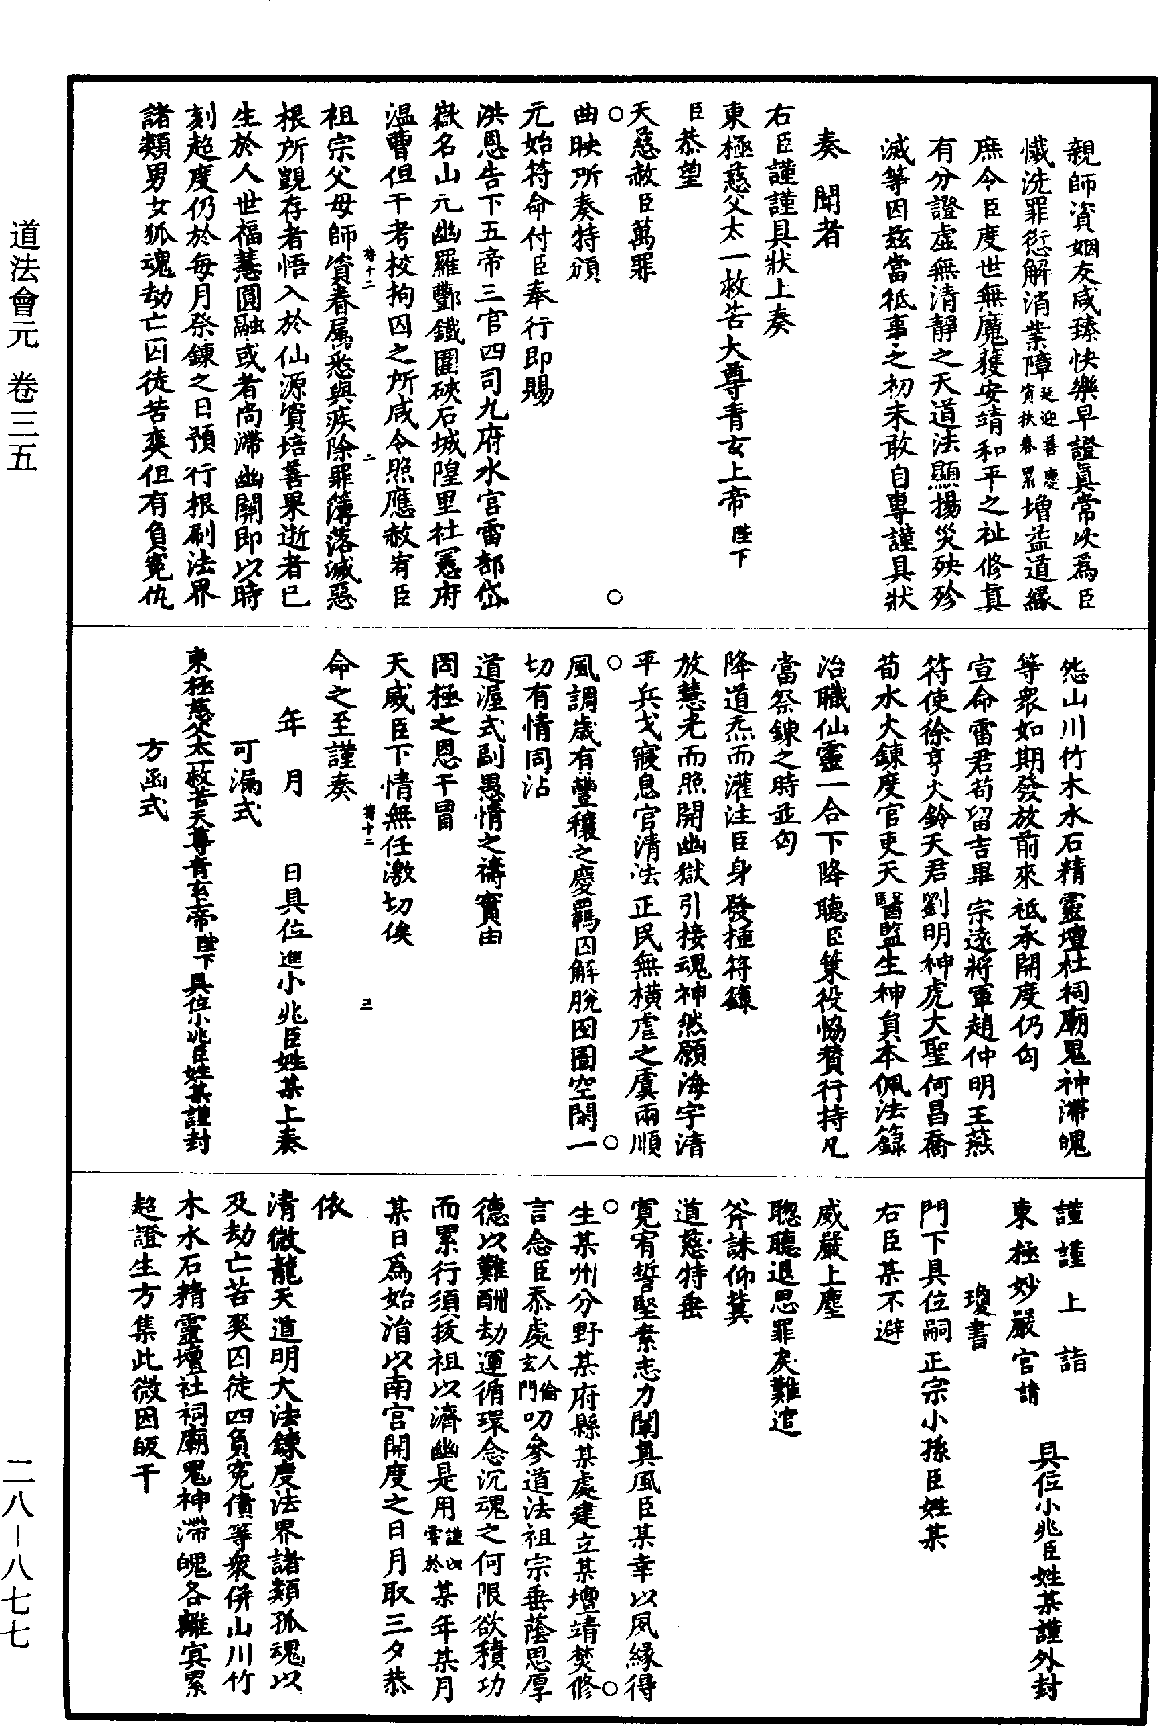 親師資姻友咸臻快樂早證眞常次爲臣
懺洗罪愆解消業障延迎善慶資扶眷累增益道緣
庶令臣度世無魔獲安靖和平之祉修眞
有分證虛無清靜之天道法顯揚災殃殄
滅等因玆當祗事之初未敢自專謹具狀
奏聞者
右臣謹謹具狀上奏
東極慈父太一救苦大尊青玄上帝陛下
臣恭望
天慈赦臣萬罪
曲映所奏特頒
元始符命付臣奉行即賜
洪恩告下五帝三官四司九府水官雷部岱
嶽名山元幽羅酆鐵圍硤石城隍里社冥府
溫曹但干考校拘囚之所咸令照應赦宥臣
祖宗父母師資眷屬悉與疾除罪簿落滅惡
根所覬存者悟入於仙源資培善果逝者已
生於人世福慧圓融或者尚滯幽關即以時
刻超度仍於每月祭鍊之日預行根刷法界
諸類男女狐魂劫亡囚徒苦爽但有負冤仇
怨山川竹木水石精靈壇社祠廟鬼神滯魄
等衆如期發放前來祗承開度仍勾
宣命雷君苟留吉畢宗遠將軍趙仲明王燕
符使徐亨火鈴天君劉明神虎大聖何昌喬
荀水火鍊度官吏天醫監生神員本佩法籙
治職仙靈一合下降聽臣策役恊贊行持凡
當祭鍊之時並匃
降道炁而灌注臣身發揮符籙
放慧光而照開幽獄引接魂神然願海宇清
平兵戈寢息官清法正民無橫虐之虞雨順
風調歲有豐穰之慶羈囚解脫囹圄空閑一
切有情同沾
道渥式副愚情之禱實由
罔極之恩干冒
天威臣下情無任激切俟
命之至謹奏
年 月 日具位進小兆臣姓某上奏
可漏式
東極慈父太一救苦天尊青玄帝陛下具位小兆臣姓某謹封
方函式
謹謹上詣
東極妙嚴官請 具位小兆臣姓某謹外封
瓊書
門下具位嗣正宗小孫臣姓某
右臣某不避
威嚴上塵
聰聽退思罪戾難逭
斧誅仰冀
道慈特垂
寬宥誓堅素志力闡眞風臣某幸以夙緣得
生某州分野某府縣某處建立某壇靖焚修
言念臣忝處人倫玄門叨參道法祖宗垂蔭思厚
德以難酬劫運循環念沉魂之何限欲積功
而累行須拔祖以濟幽是用謹以雷於某年某月
某日爲始消以南宮開度之日月取三夕恭
依
清微龍天道明大法鍊度法界諸類孤魂以
及劫亡苦爽囚徒四負冤債等衆併山川竹
木水石精靈壇社祠廟鬼神滯魄各離冥累
超證生方集此微因皈干
道法會元 卷三五
二八-八七七